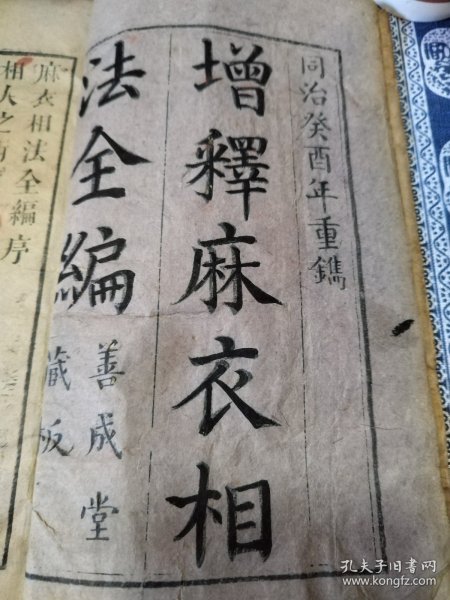 同治癸酉年重鐫
增釋麻衣相
法全編
善成堂
藏板
麻衣相法全編序
相人之
孔夫子旧书网
www.kongfz.com